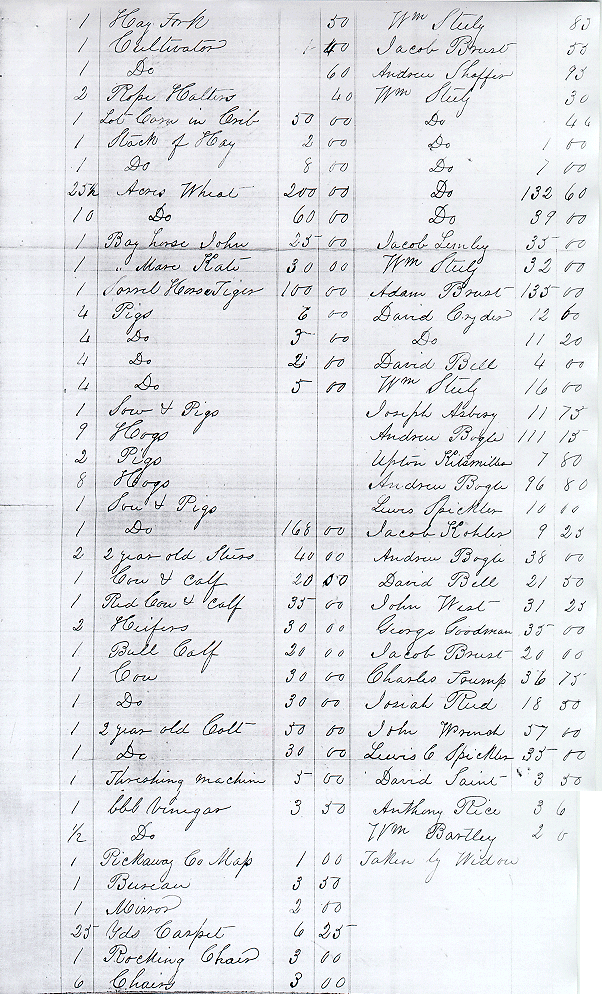 1 Hay Fork 50 Wm Steely 85
1 Cultivator 1 40 Jacob Brust 50
1 Do 60 Andrew Shaffer 95
2 Rope Halters 40 Wm Steely 30
1 Lot Corn in Crib 50 00 Do 46
1 Stack of Hay 2 00 Do 1 00
1 Do 8 00 Do 7 00
25½ Acres Wheat 200 00 Do 132 60
10 Do 60 00 Do 39 00
1 Bay horse John 25 00 Jacob Lemley 35 00
1 " Mare Kate 30 00 Wm Steely 32 00
1 Sorrel Horse Tiger 100 00 Adam Brust 135 00
4 Pigs 6 00 David Cryder 12 60
4 Do 3 00 Do 11 20
4 Do 2 00 David Bell 4 00
4 Do 5 00 Wm Steely 16 00
1 Sow & Pigs Joseph Asbery 11 75
9 Hogs Andrew Bogle 111 15
2 Pigs Upton Kitsmiller 7 80
8 Hogs Andrew Bogle 96 80
1 Sow & Pigs Lewis Spickler 10 00
1 Do 168 00 Jacob Kohler 9 25
2 2 year old Stirs 40 00 Andrew Bogle 38 00
1 Cow & Calf 20 00 David Bell 21 50
1 Red Cow & Calf 35 00 John West 31 25
2 Heifers 30 00 George Goodman 35 00
1 Bull Calf 20 00 Jacob Brust 20 00
1 Cow 30 00 Charles Trump 36 75
1 Do 30 00 Josiah Reid 18 50
1 2 year old Colt 50 00 John 57 00
1 Do 30 00 Lewis C Spickler 35 00
1 Threshing machin 5 00 David Saint 3 50
1 bbl Vinegar 3 50 Anthony Rice 3 6
½ Do Wm Bartley 2 0
1 Pickaway Co Map 1 00 Taken by Widow
1 Bureau 3 50
1 Mirror 2 00
25 Yds Carpet 6 25
1 Rocking Chair 3 00
6 Chairs 3 00